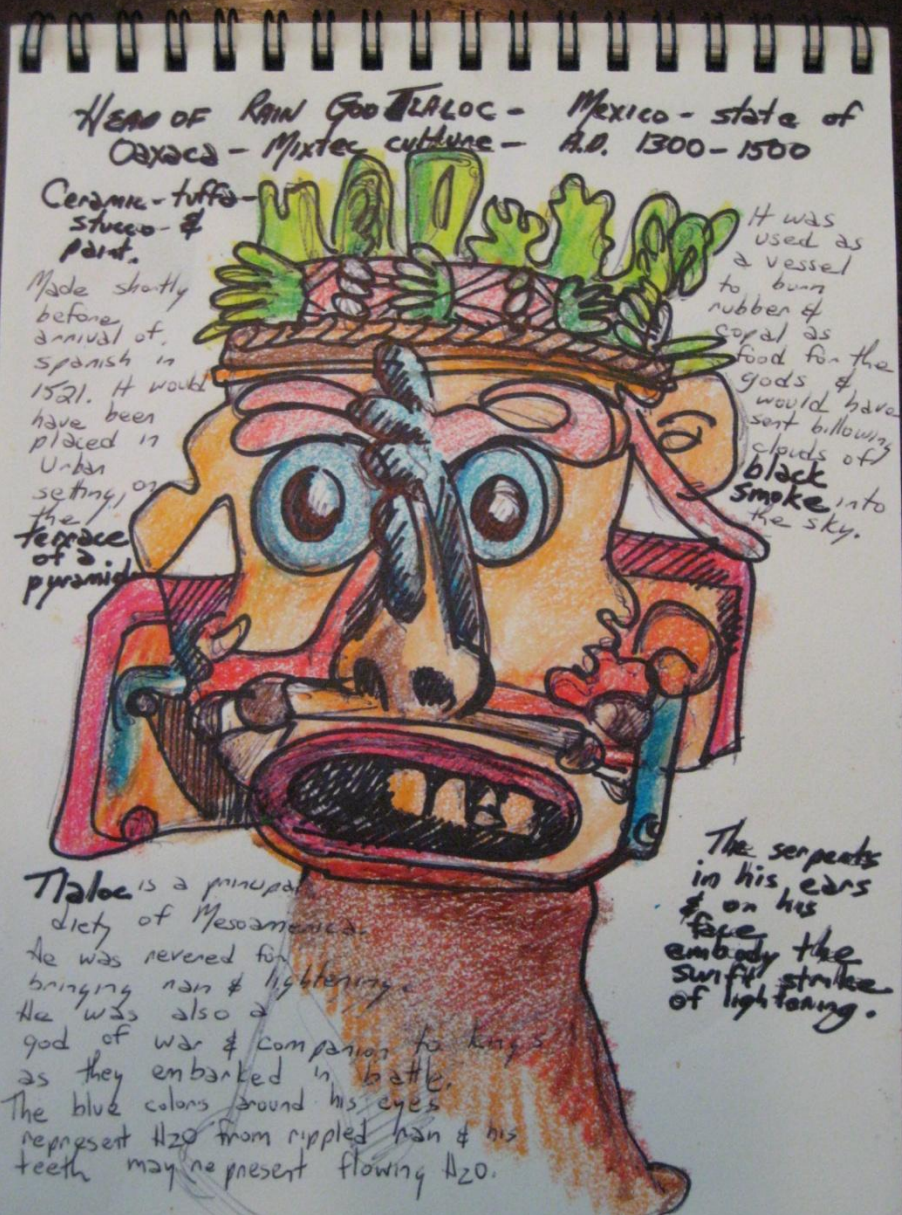 Head of Rain God Tlaloc - Mexico - state of
Oaxaca - Mixtec culture - A.D. 1300-1500
Ceramic - tuffa -
stucco - &
paint.
Made shortly
before
arrival of
Spanish in
1521. It would
have been
placed in
Urban
setting, on
the
terrace
of a
pyramid
It was
used as
a vessel
to burn
rubber &
copal as
food for the
gods &
would have
sent billowing
clouds of
black
smoke into
the sky.
The serpents
in his ears
& on his
face
embody the
swift strike
of lightening.
Tlaloc is a principal
diety of Mesoamerica.
He was revered for
bringing rain & lightening.
He was also a
god of war & companion to kings
as they embarked in battle.
The blue colors around his eyes
represent H2O from rippled rain & his
teeth may represent flowing H2O.